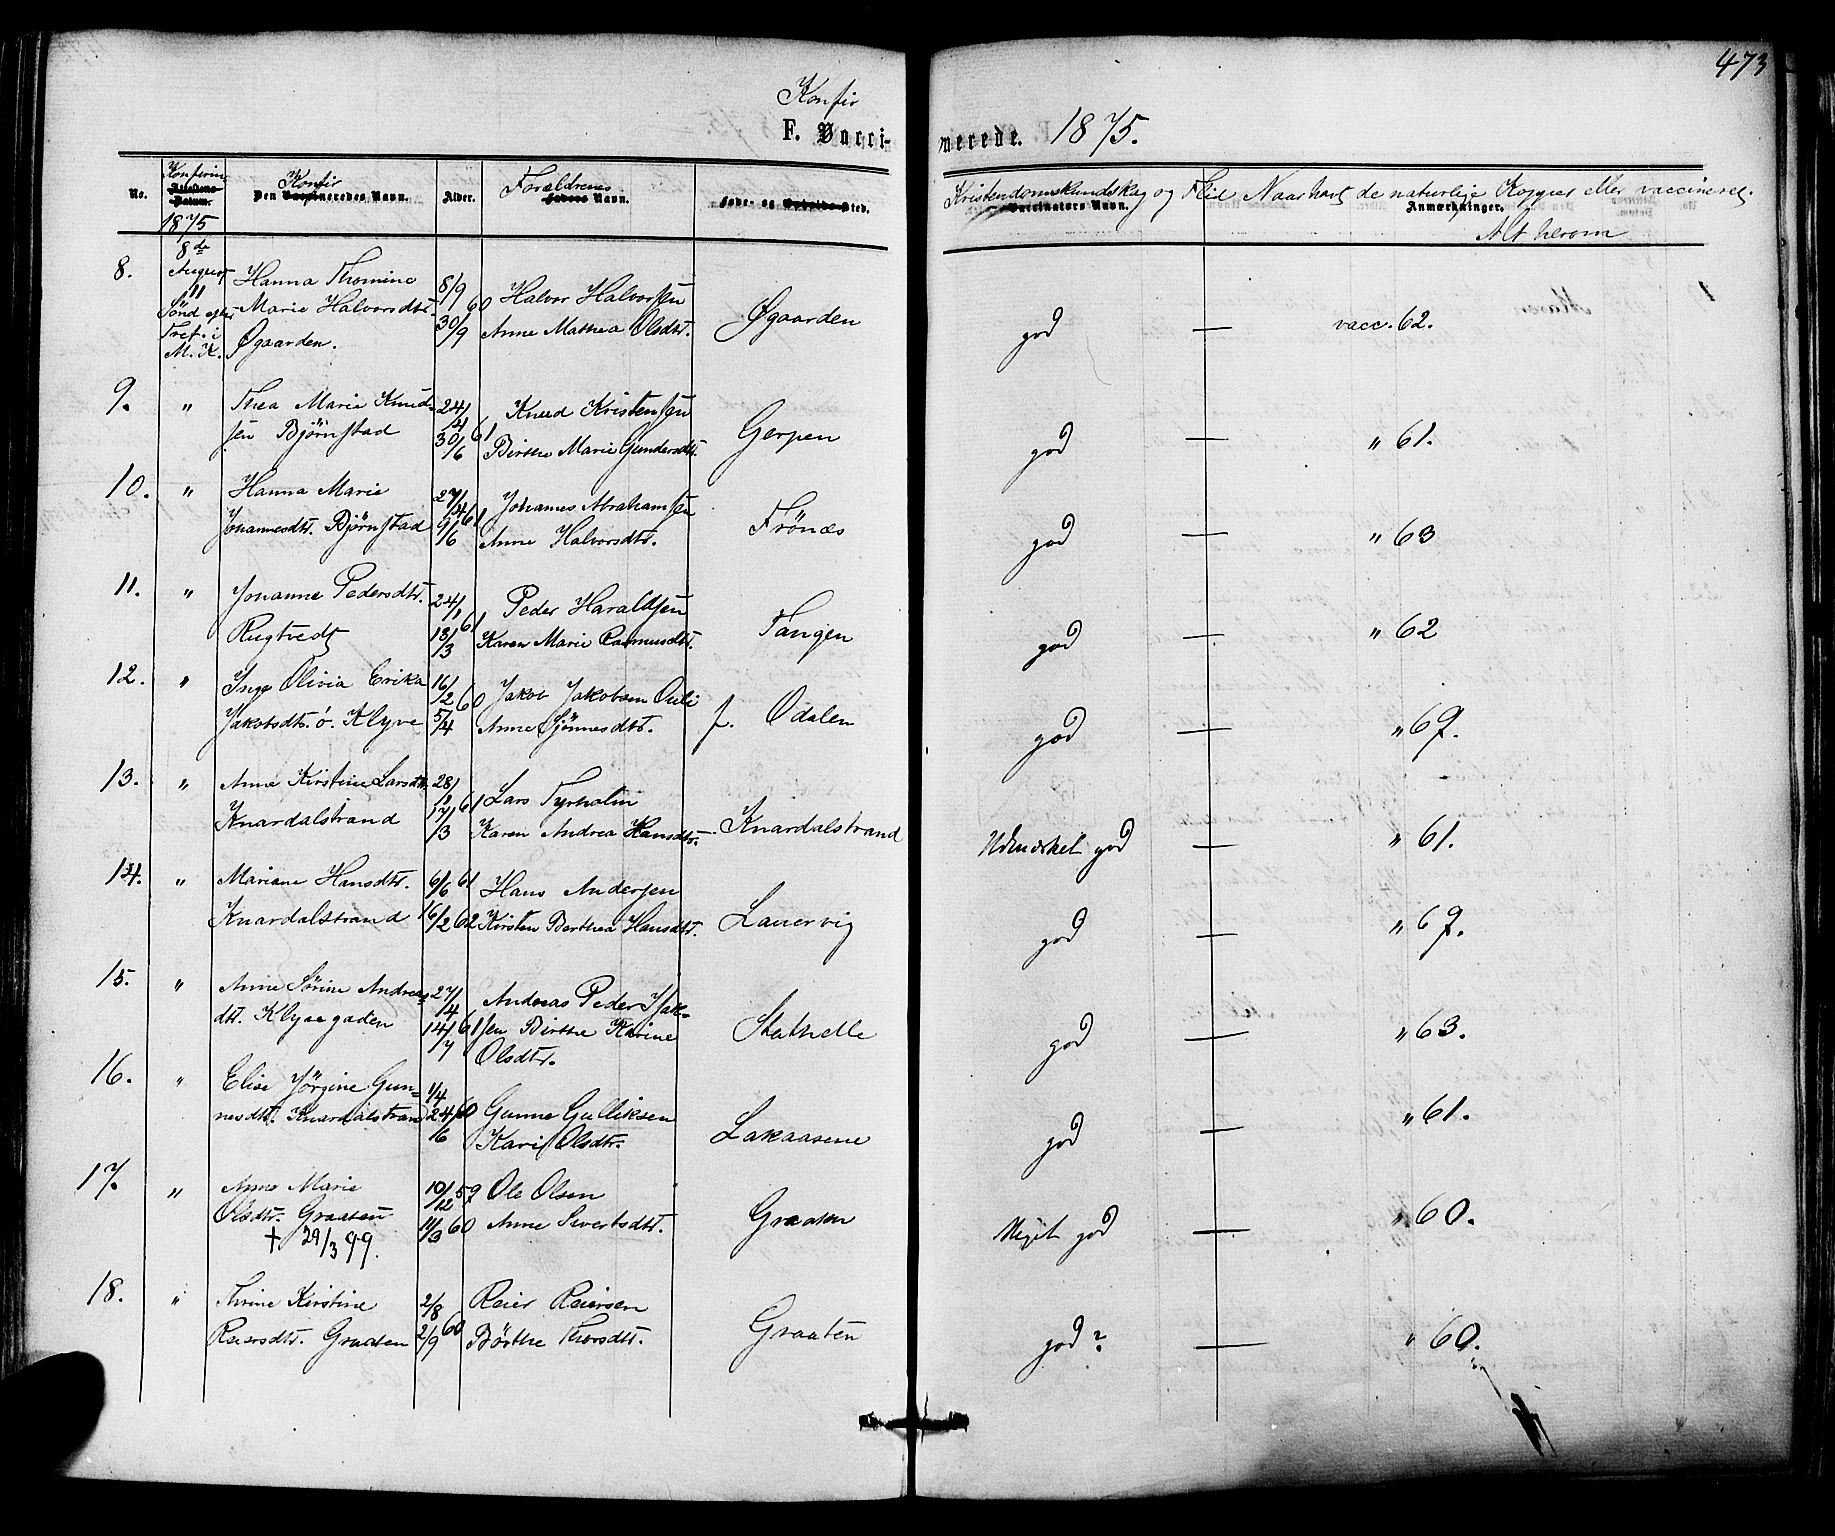 473
Konfir
F. Vacci-
nerede. 1875.
No.
Konfirm
Attestens
Datum.
1875
Konfir
Den Vaccineredes Navn.
Alder.
Forældrenes
Faders Navn.
Føde- og Opholds-Sted.
Kristendomskundskab og Flid
Vaccinators Navn.
Naar havt de naturlige Kopper eller vaccineret.
Anmærkninger.
Alt herom
8. 8de August 11 Sönd efter Tref. i M. K.
Hanna Thomine
Marie Halvorsdtr.
Øgaarden.
8/9 60
30/9
Halvor Halvorsen
Anne Mathea Olsdtr.
Øgaarden
god — vacc. 62.
9. "
Thea Marie Knud-
sen Björnstad
24/4 61
30/6
Knud Kristensen
Birthe Marie Gundersdtr.
Gerpen
god — " 61.
10. "
Hanna Marie
Johannesdtr. Björnstad
27/4 61
9/6
Johannes Abrahamsen
Anne Halvorsdtr.
Frönæs
god — " 63
11. "
Johanne Pedersdtr.
Rugtvedt
24/1 61
13/3
Peder Haraldsen
Karen Marie Rasmusdtr.
Tangen
god — " 62
12. "
Inge Olivia Erika
Jakobsdtr. ö. Klyve
16/2 60
5/4
Jakob Jakobsen
Anne
f. Odalen
god — " 69.
13. "
Anne Kirstine Larsdtr.
Knardalstrand
28/1 61
17/3
Lars Tyrholm
Karen Andrea Hansdtr.
Knardalstrand
Udmærket god — " 61.
14. "
Mariane Hansdtr.
Knardalstrand
6/6 61
16/2 62
Hans Andersen
Kirsten Berthea Hansdtr.
Laurvig
god — " 69.
15. "
Anne Sörine Andreas-
dtr. Klyvegaden
27/4 61
14/7
Andreas Peder Isak-
sen Birthe Karine
Olsdtr.
Stathelle
god — " 63.
16. "
Elise Jörgine Gun-
nesdtr. Knardalstrand
1/4 60
24/6
Gunne Gulliksen
Kari Olsdtr.
Lakaasene
god — " 61.
17. "
Anne Marie
Olsdtr. Graaten
+ 29/3 99.
10/12 59
11/3 60
Ole Olsen
Anne Sivertsdtr.
Graaten
Meget god — " 60.
18. "
Thrine Kirstine
Reiersdtr. Graaten
2/8 60
2/9
Reier Reiersen
Börthe Thorsdtr.
Graaten
god? — " 60.